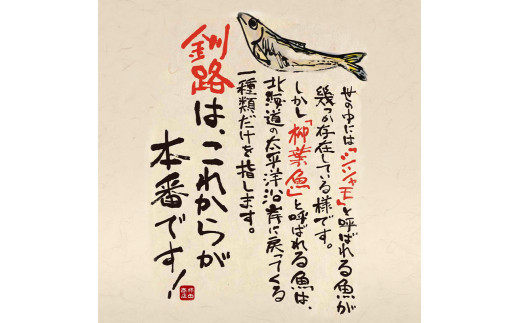 世の中には「シシャモ」と呼ばれる魚が
幾つか存在している様です。
しかし「柳葉魚」と呼ばれる魚は、
北海道の太平洋沿岸に戻ってくる
一種類だけを指します。
釧路は、これからが
本番です！